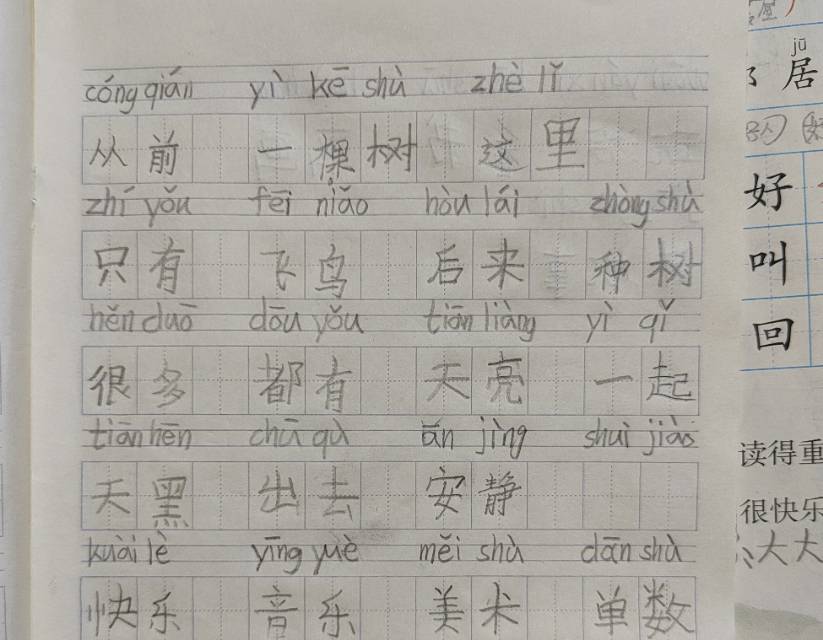 cóng qián yì kē shù zhè lǐ
从前 一棵树 这里
zhí yǒu fēi niǎo hòu lái zhòng shù
只有 飞鸟 后来 种树
hěn duō dōu yǒu tiān liàng yì qǐ
很多 都有 天亮 一起
tiān hēn chū qù ān jìng shuì jiào
天黑 出去 安静
kuài lè yīng yuè měi shù dān shù
快乐 音乐 美术 单数
jū
居
好
叫
回
读得重
很快乐
大大